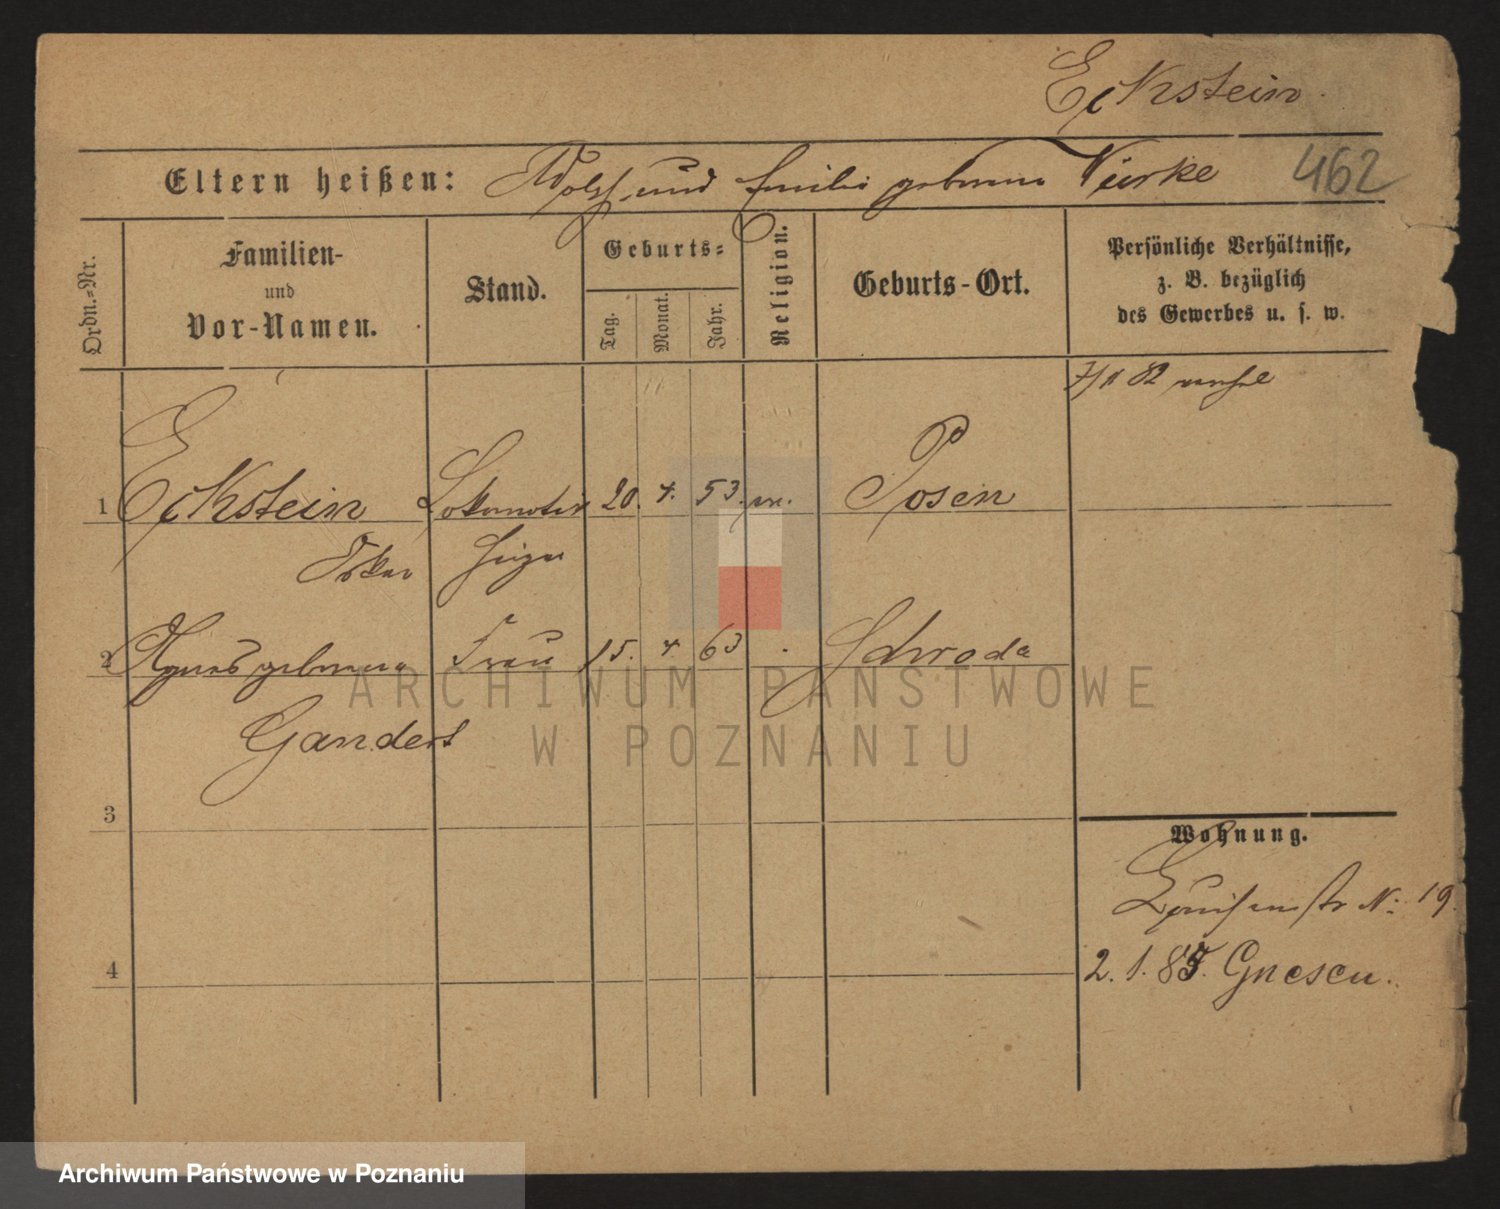 Eckstein.
Eltern heißen: Adolf und Emilie geborene Nürke 462
Ordn.-Nr.
Familien- und Vor-Namen.
Stand.
Geburts-
Tag.
Monat.
Jahr.
Religion.
Geburts-Ort.
Persönliche Verhältnisse,
z. B. bezüglich
des Gewerbes u. s. w.
82
1 Eckstein Lokomotiv 20. 4. 53. ev. Posen
Oskar Heizer
2 Agnes geborene Frau 15. 4. 63 Schroda
Gandert
3
4
Wohnung.
Louisenstr No. 19.
2. 1. 85. Gnesen.
ARCHIWUM PAŃSTWOWE
W POZNANIU
Archiwum Państwowe w Poznaniu